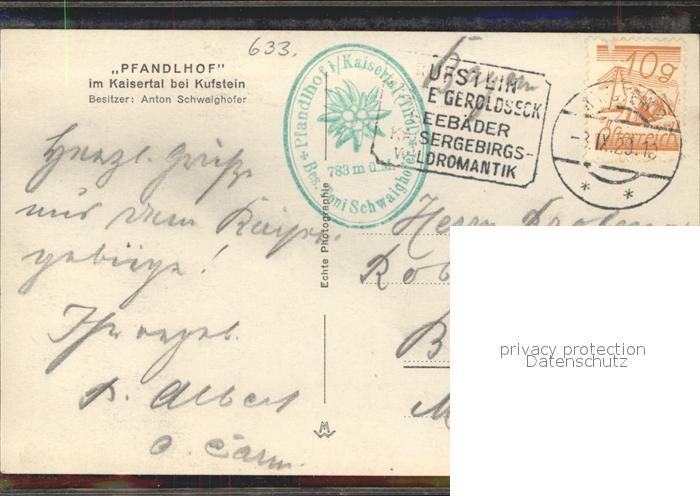 633.
„PFANDLHOF"
im Kaisertal bei Kufstein
Besitzer: Anton Schwaighofer
* Pfandlhof i/Kaisertal, Tirol *
783 m ü.M.
Bes. Toni Schwaighofer
UFSTEIN
E GEROLDSECK
EEBÄDER
SERGEBIRGS-
LDROMANTIK
10g
Österreich
IX.29.
Herzl. Grüße
aus dem Kaiser
gebirge!
Ihr ergeb.
Albert
Echte Photographie
Herrn
Rob
B
M
privacy protection
Datenschutz